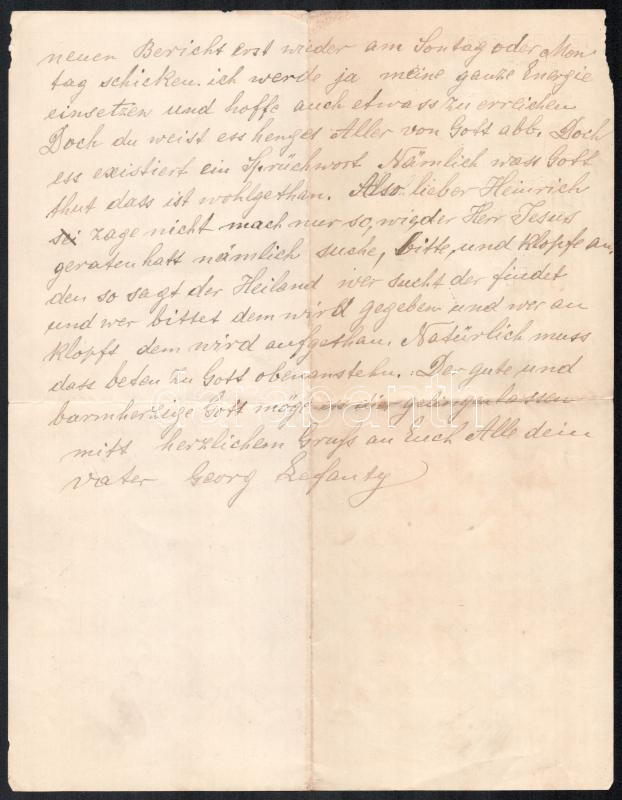 neuen Bericht erst wieder am Sontag oder Mon-
tag schicken. ich werde ja meine ganze Energie
einsetzen und hoffe auch etwass zu erreichen
Doch du weist ess henges Aller von Gott abb. Doch
ess existiert ein Sprüchwort Nämlich wass Gott
thut dass ist wohlgethan. Also lieber Heinrich
zage nicht mach nur so, wie der Herr Jesus
geraten hatt nämlich suche, bitte, und klopfe an,
den so sagt der Heiland wer sucht der findet
und wer bittet dem wird gegeben und wer an
klopft dem wird aufgethan. Natürlich muss
dass beten zu Gott obenanstehn. Der gute und
barmherzige Gott möge es dir gelingen lassen
mitt herzlichem Gruss an Euch Alle dein
Vater Georg Lefanty
darabanth